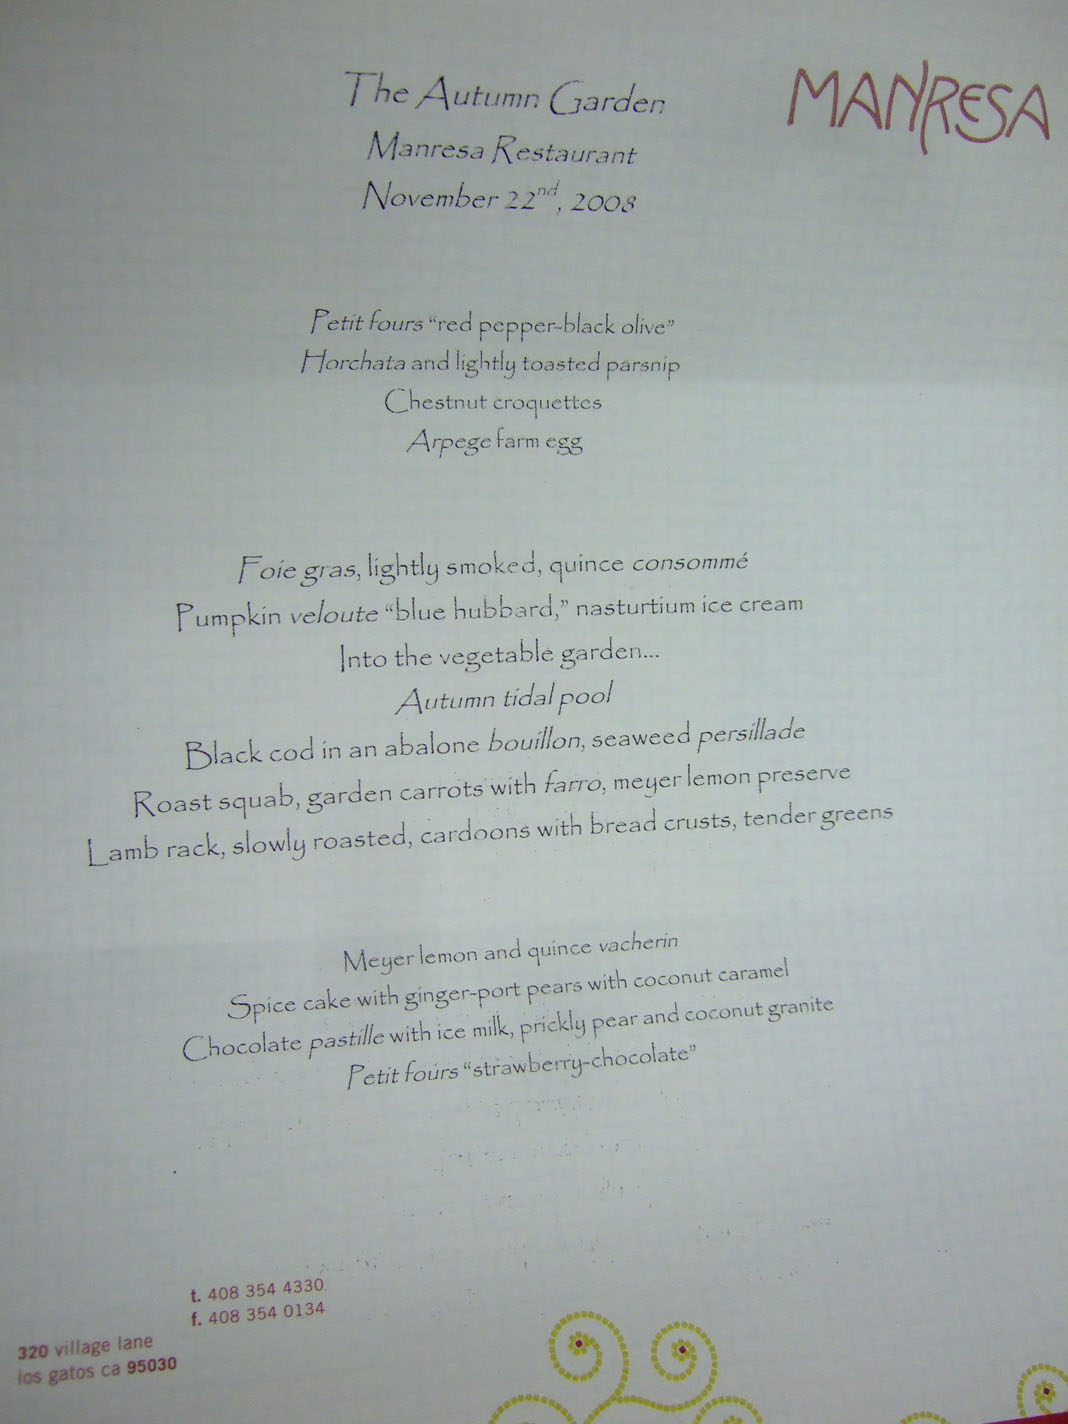 The Autumn Garden
MANRESA
Manresa Restaurant
November 22nd, 2008
Petit fours “red pepper-black olive”
Horchata and lightly toasted parsnip
Chestnut croquettes
Arpege farm egg
Foie gras, lightly smoked, quince consommé
Pumpkin veloute “blue hubbard,” nasturtium ice cream
Into the vegetable garden...
Autumn tidal pool
Black cod in an abalone bouillon, seaweed persillade
Roast squab, garden carrots with farro, meyer lemon preserve
Lamb rack, slowly roasted, cardoons with bread crusts, tender greens
Meyer lemon and quince vacherin
Spice cake with ginger-port pears with coconut caramel
Chocolate pastille with ice milk, prickly pear and coconut granite
Petit fours “strawberry-chocolate”
t. 408 354 4330
f. 408 354 0134
320 village lane
los gatos ca 95030